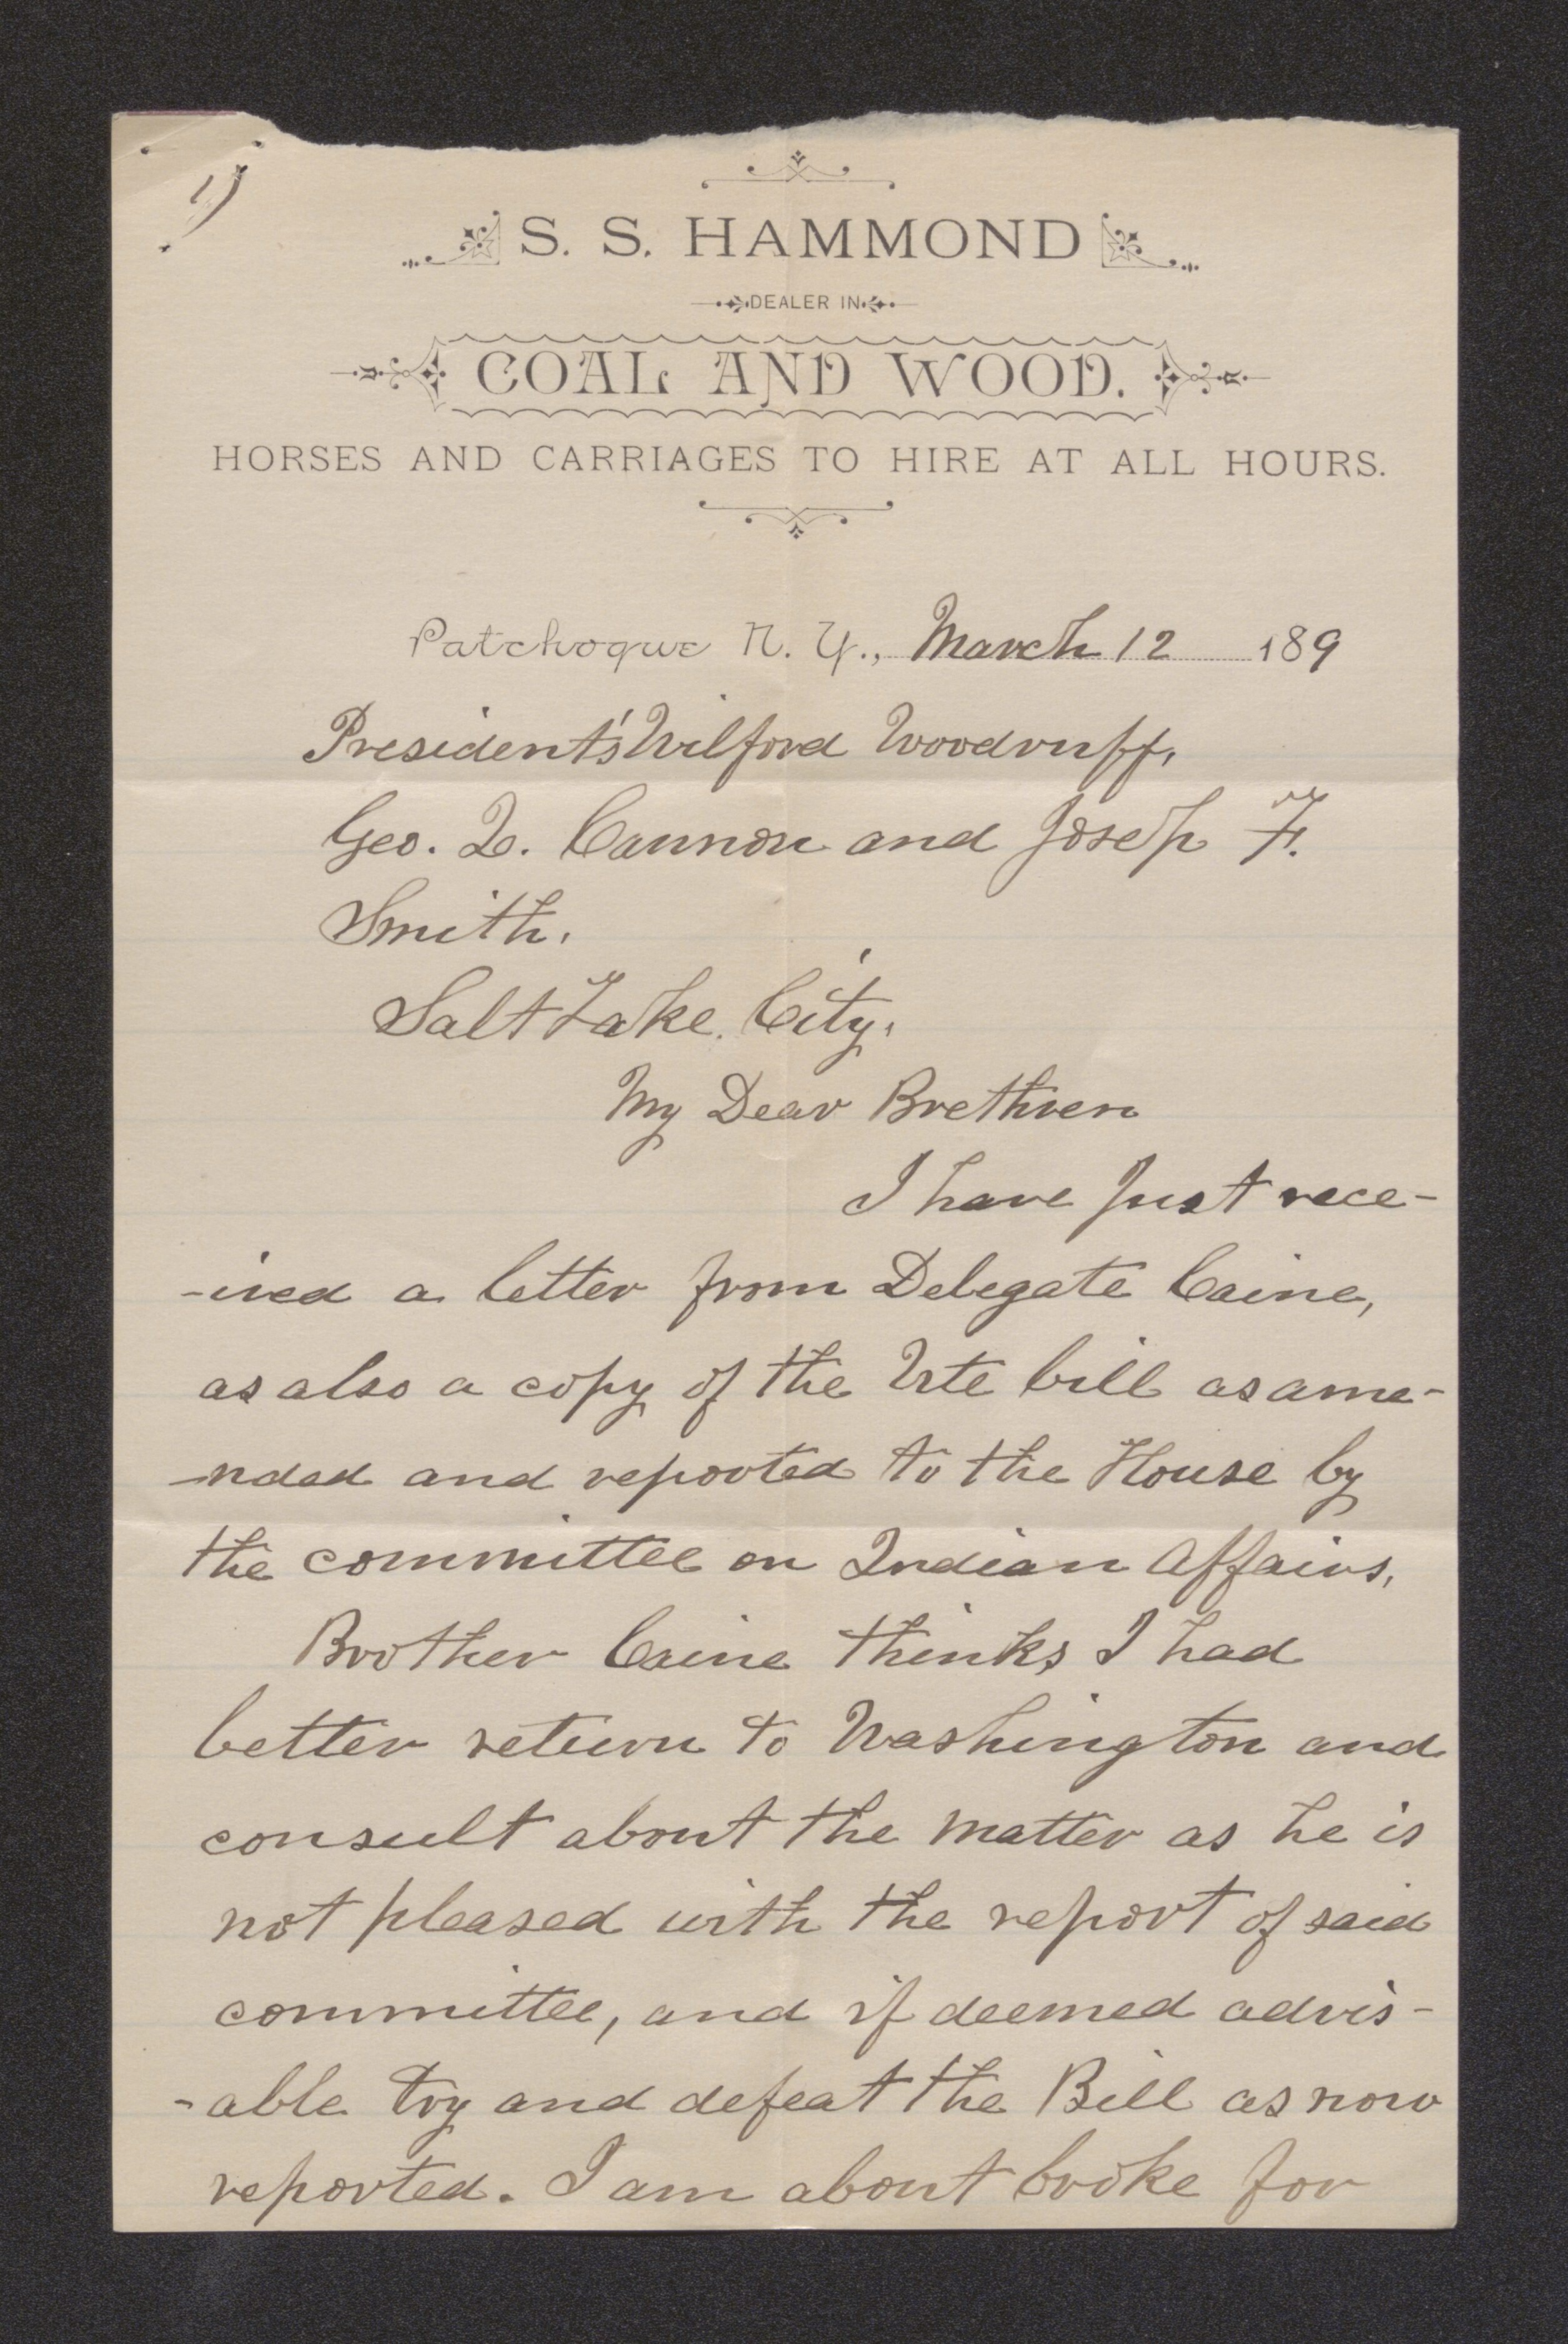 1)
S. S. HAMMOND
DEALER IN
COAL AND WOOD.
HORSES AND CARRIAGES TO HIRE AT ALL HOURS.
Patchogue N. Y., March 12 189
President's Wilford Woodruff,
Geo. Q. Cannon and Joseph F.
Smith.
Salt Lake City.
My Dear Brethren
I have just rece-
-ived a letter from Delegate Caine,
as also a copy of the Ute bill as ame-
-nded and reported to the House by
the committee on Indian Affairs.
Brother Caine thinks I had
better return to Washington and
consult about the matter as he is
not pleased with the report of said
committee, and if deemed advis-
-able try and defeat the Bill as now
reported. I am about broke for